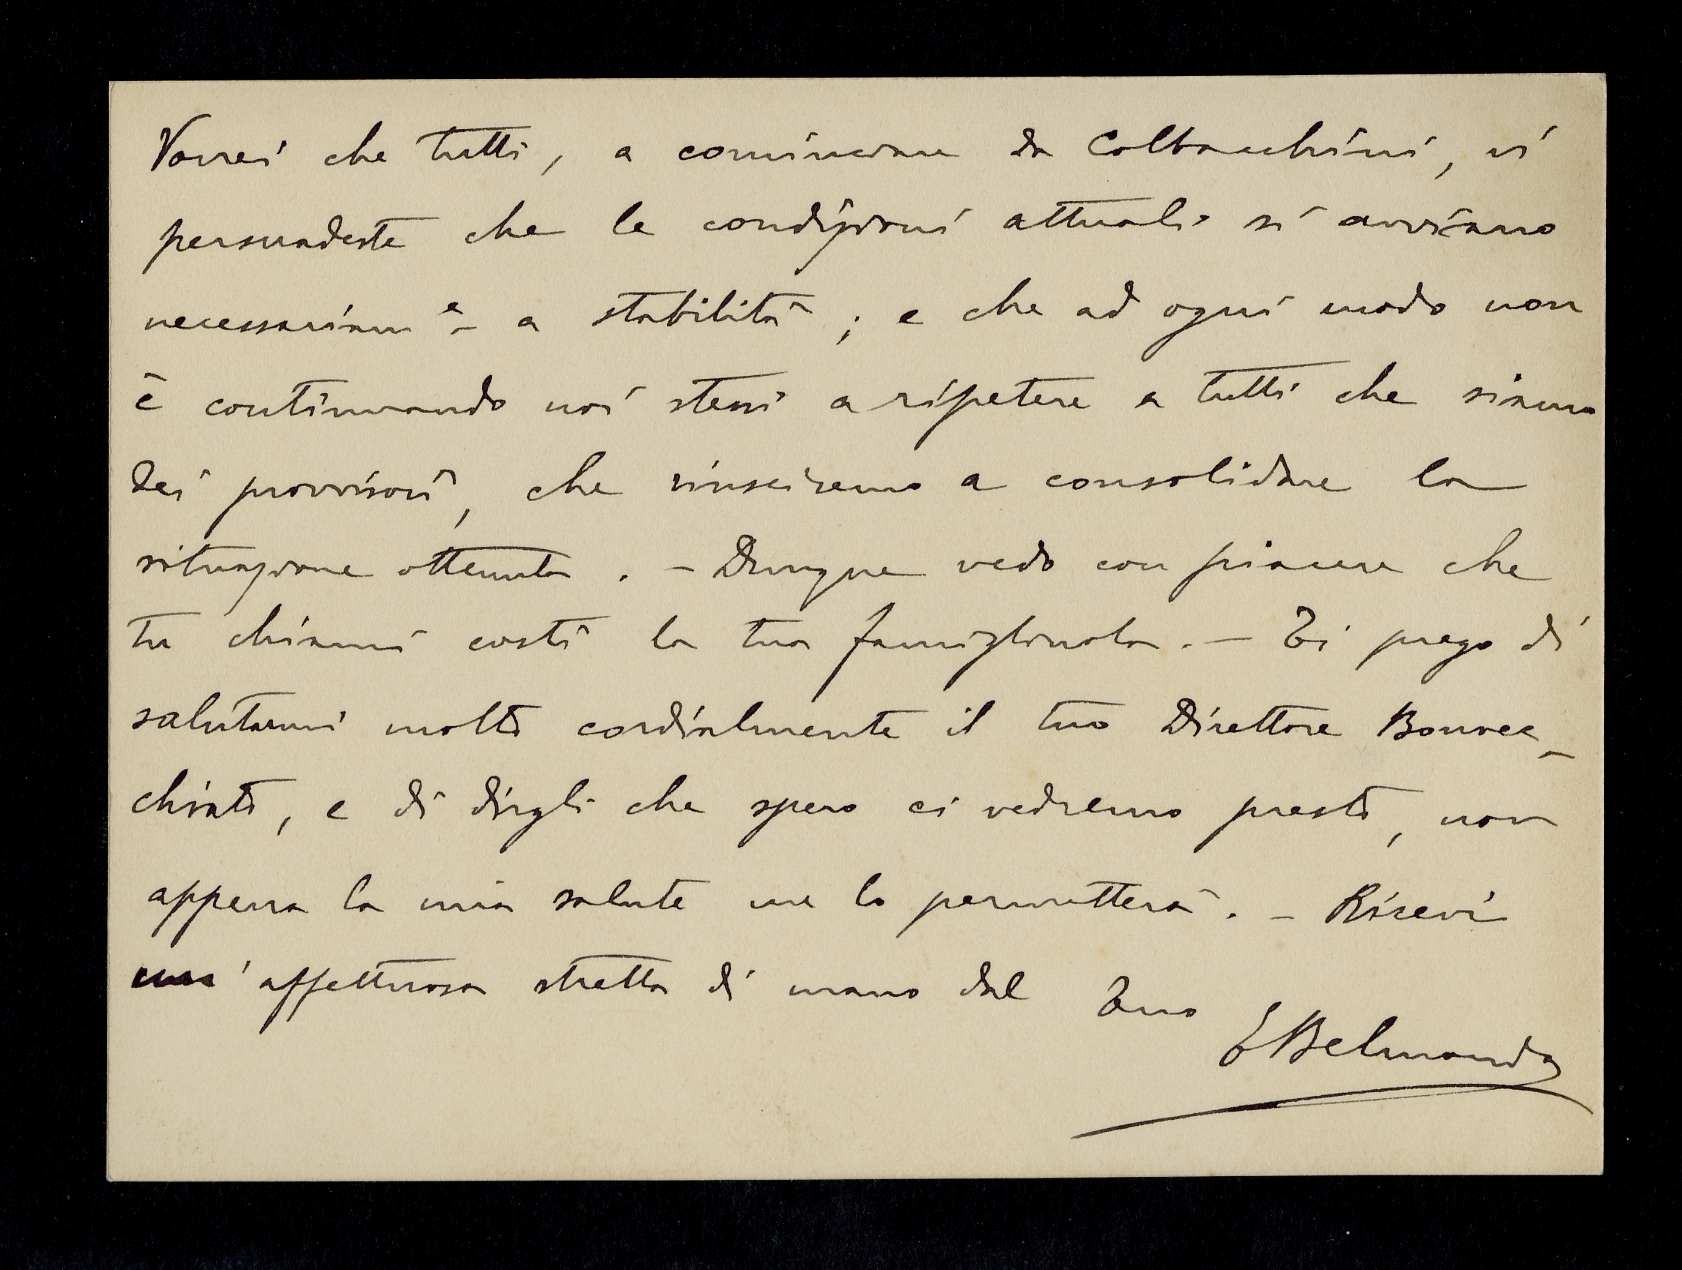 Vorrei che tutti, a cominciare da Colbacchini, vi
persuadeste che le condizioni attuali si avviano
necessariam e- a stabilità; e che ad ogni modo non
è continuando noi stessi a ripetere a tutti che siamo
dei provvisori, che riusciremo a consolidare la
situazione ottenuta. - Dunque vedo con piacere che
tu chiami costì la tua famigliuola. - Ti prego di
salutarmi molto cordialmente il tuo Direttore Bonvec-
chiato, e di dirgli che spero ci vedremo presto, non
appena la mia salute me lo permetterà. - Ricevi
un' affettuosa stretta di mano dal Tuo
E Belmondo